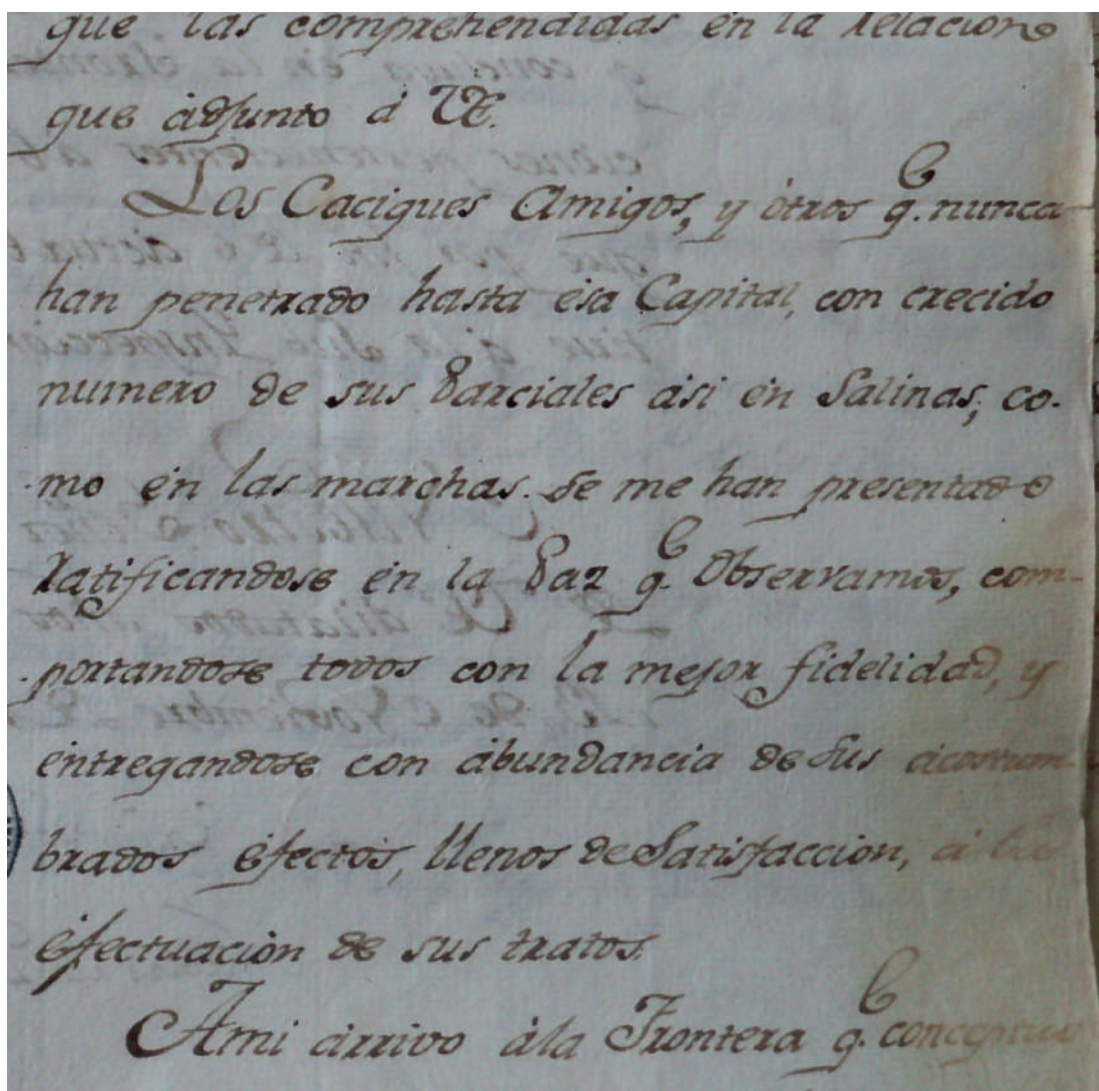 que las comprehendidas en la relacion
que adjunto á VE.
Los Caciques Amigos, y ótros q.e nunca
han penetrado hasta ésa Capital, con crecido
numero de sus Parciales asi én Salinas, co-
mo én las marchas se me han presentado
ratificandose én la Paz q.e Observamos, com-
portandose todos con la mejor fidelidad, y
éntregandose con ábundancia de sus acostum
brados éfectos, llenos de Satisfaccion, á la
éfectuacion de sus tratos.
Ami árrivo ála Frontera q.e